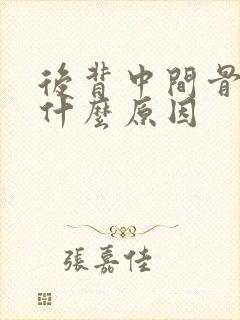 後背中間骨
什麼原因
張嘉佳